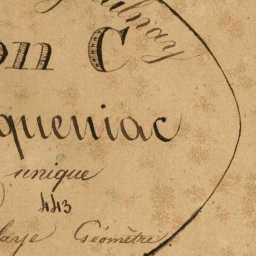 on C
queniac
unique
443
laye Géomètre